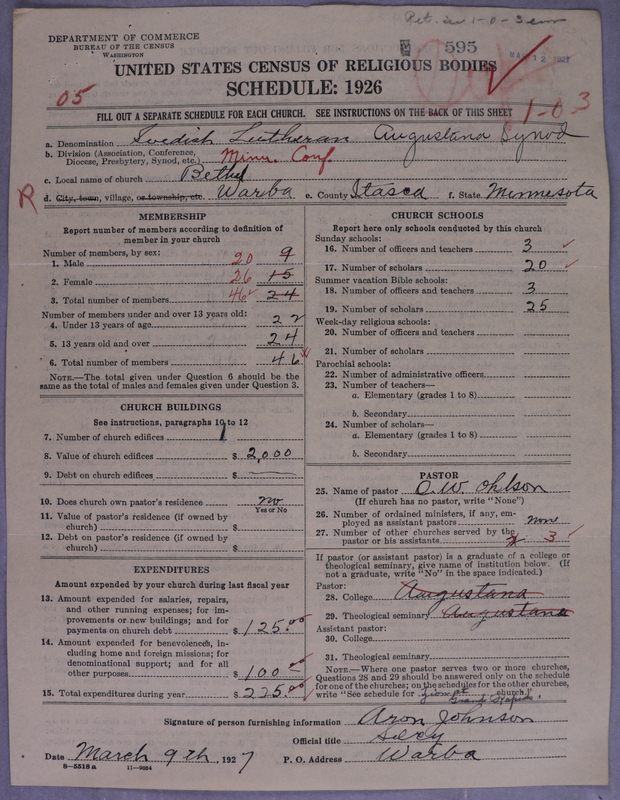 Ret. in 1-0-3
DEPARTMENT OF COMMERCE
BUREAU OF THE CENSUS
WASHINGTON
595
MAR 12 1927
UNITED STATES CENSUS OF RELIGIOUS BODIES
SCHEDULE: 1926
05
FILL OUT A SEPARATE SCHEDULE FOR EACH CHURCH. SEE INSTRUCTIONS ON THE BACK OF THIS SHEET
1-0 3
a. Denomination Swedish Lutheran Augustana Synod
b. Division (Association, Conference, Diocese, Presbytery, Synod, etc.) Minn. Conf.
c. Local name of church Bethel
R d. City, town, village, or township, etc. Warba e. County Itasca f. State Minnesota
MEMBERSHIP
Report number of members according to definition of
member in your church
Number of members, by sex:
1. Male 20 9
2. Female 26 15
3. Total number of members 46 24
Number of members under and over 13 years old:
4. Under 13 years of age 22
5. 13 years old and over 24
6. Total number of members 46
NOTE.—The total given under Question 6 should be the
same as the total of males and females given under Question 3.
CHURCH BUILDINGS
See instructions, paragraphs 10 to 12
7. Number of church edifices 1
8. Value of church edifices $ 2,000
9. Debt on church edifices $ —
10. Does church own pastor's residence no
Yes or No
11. Value of pastor's residence (if owned by
church) $
12. Debt on pastor's residence (if owned by
church) $
EXPENDITURES
Amount expended by your church during last fiscal year
13. Amount expended for salaries, repairs,
and other running expenses; for im-
provements or new buildings; and for
payments on church debt $ 125.00
14. Amount expended for benevolences, in-
cluding home and foreign missions; for
denominational support; and for all
other purposes $ 100.00
15. Total expenditures during year $ 225.00
CHURCH SCHOOLS
Report here only schools conducted by this church
Sunday schools:
16. Number of officers and teachers 3
17. Number of scholars 20
Summer vacation Bible schools:
18. Number of officers and teachers 3
19. Number of scholars 25
Week-day religious schools:
20. Number of officers and teachers
21. Number of scholars
Parochial schools:
22. Number of administrative officers
23. Number of teachers—
a. Elementary (grades 1 to 8)
b. Secondary
24. Number of scholars—
a. Elementary (grades 1 to 8)
b. Secondary
PASTOR
25. Name of pastor O. W. Ohlson
(If church has no pastor, write "None")
26. Number of ordained ministers, if any, em-
ployed as assistant pastors none
27. Number of other churches served by the
pastor or his assistants 3
If pastor (or assistant pastor) is a graduate of a college or
theological seminary, give name of institution below. (If
not a graduate, write "No" in the space indicated.)
Pastor:
28. College Augustana
29. Theological seminary Augustana
Assistant pastor:
30. College
31. Theological seminary
NOTE.—Where one pastor serves two or more churches,
Questions 28 and 29 should be answered only on the schedule
for one of the churches; on the schedules for the other churches,
write "See schedule for church."
Grand Rapids.
Signature of person furnishing information Aron Johnson
Official title Secy
Date March 9th, 1927 P. O. Address Warba
8-5518 a 11-9864